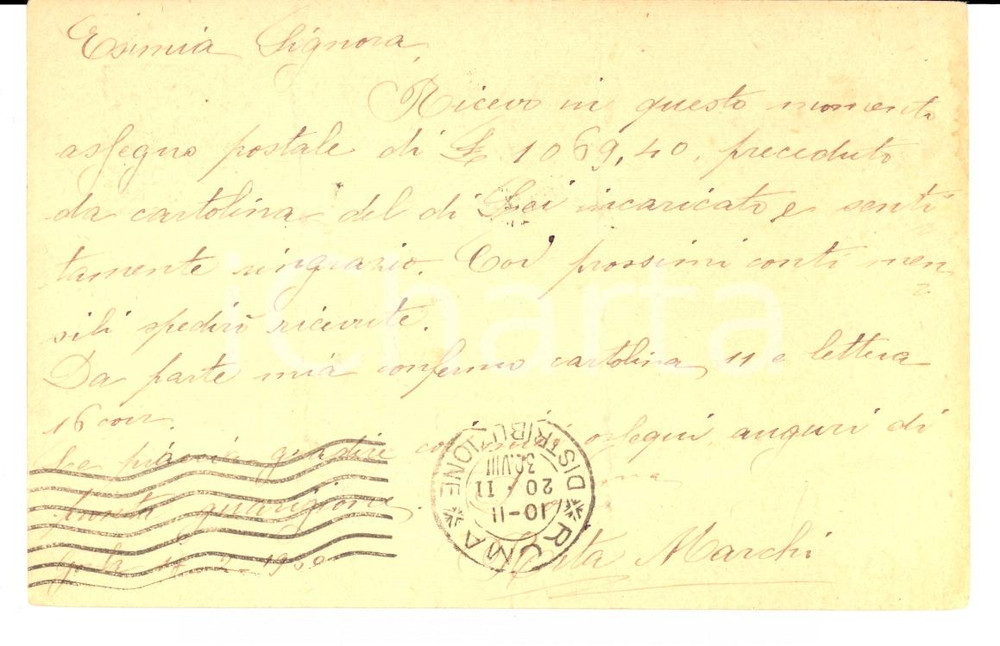 Esimia Signora
Ricevo in questo momento
assegno postale di £ 1069,40, preceduto
da cartolina del di Lei incaricato e senti
tamente ringrazio. Coi prossimi conti men
sili spedirò ricevute.
Da parte mia confermo cartolina 11 e lettera
16 corr.
gradire ossequi, auguri di
pronta guarigione.
Rita Marchi
ROMA
DISTRIBUZIONE
10-11
20·II
30.VIII
iCharta